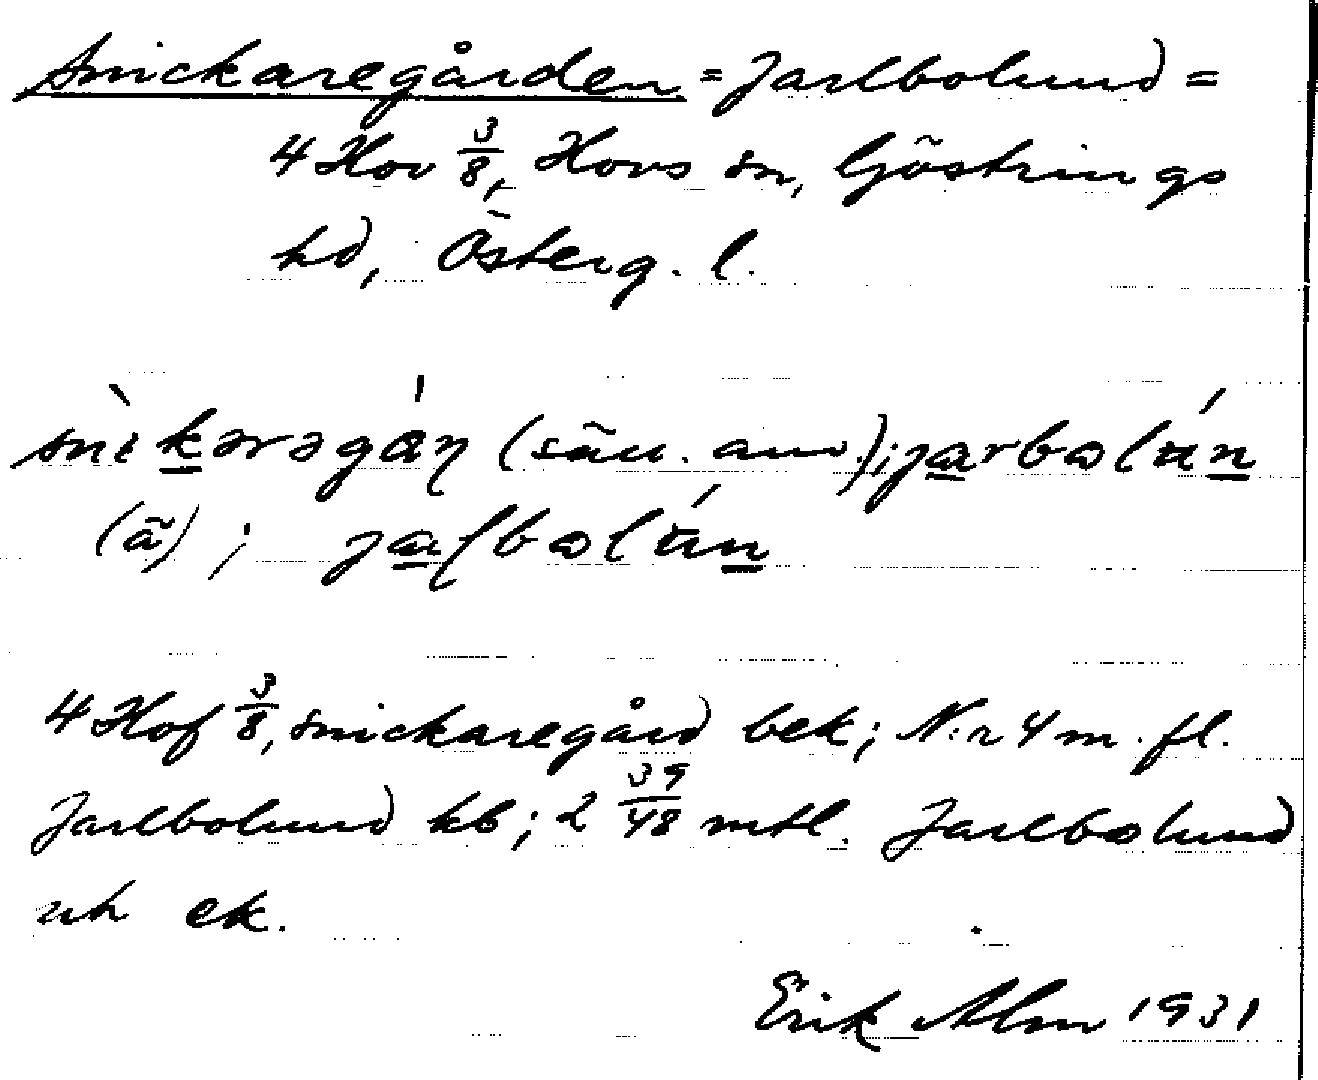 Snickaregården = Jarlbolund =
4 Hov 3/8, Hovs sn, Göstrings
hd, Österg. l.
snìkarəgá̊ṇ (sän. anv.); jarbolún
(ä) ; jaɭbolún
4 Hof 3/8, Snickaregård bek; N:r 4 m. fl.
Jarlbolund kb; 2 39/48 mtl. Jarlbolund
uh ek.
Erik Alm 1931